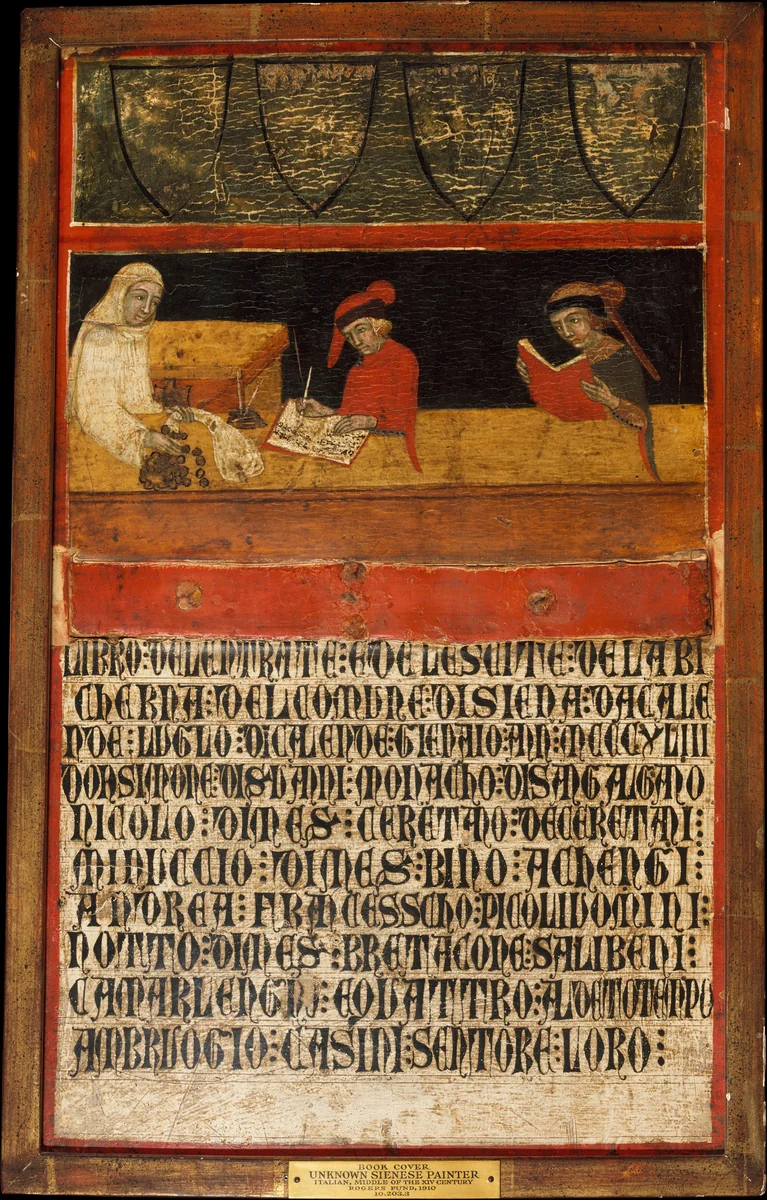 LIBRO:DELENTRATE:EDELESCITE:DELABI
CHERNA:DELCOMUNE:DISIENA:DACALE
NDE:LUGLO:DICALENDE:GIENAIO:ANN:MCCCXLIII
DONSIMONE:DISGIANNI:MONACHO:DISANGALGANO
NICOLO:DIMES:CERETANO:DECERETANI:
MINUCCIO:DIMES:BINO:ACHENGI:
ANDREA:FRANCESSCHO:PICOLUOMINI:
NOTTO:DIMES:BRETACONE:SALIBENI:
CAMARLENGHI:EQUATTRO:ALDETOTENPO
AMBRUOGIO:CASINI:SCNTORE:LORO:
BOOK COVER
UNKNOWN SIENESE PAINTER
ITALIAN, MIDDLE OF THE XIV CENTURY
ROGERS FUND, 1910
10.203.3